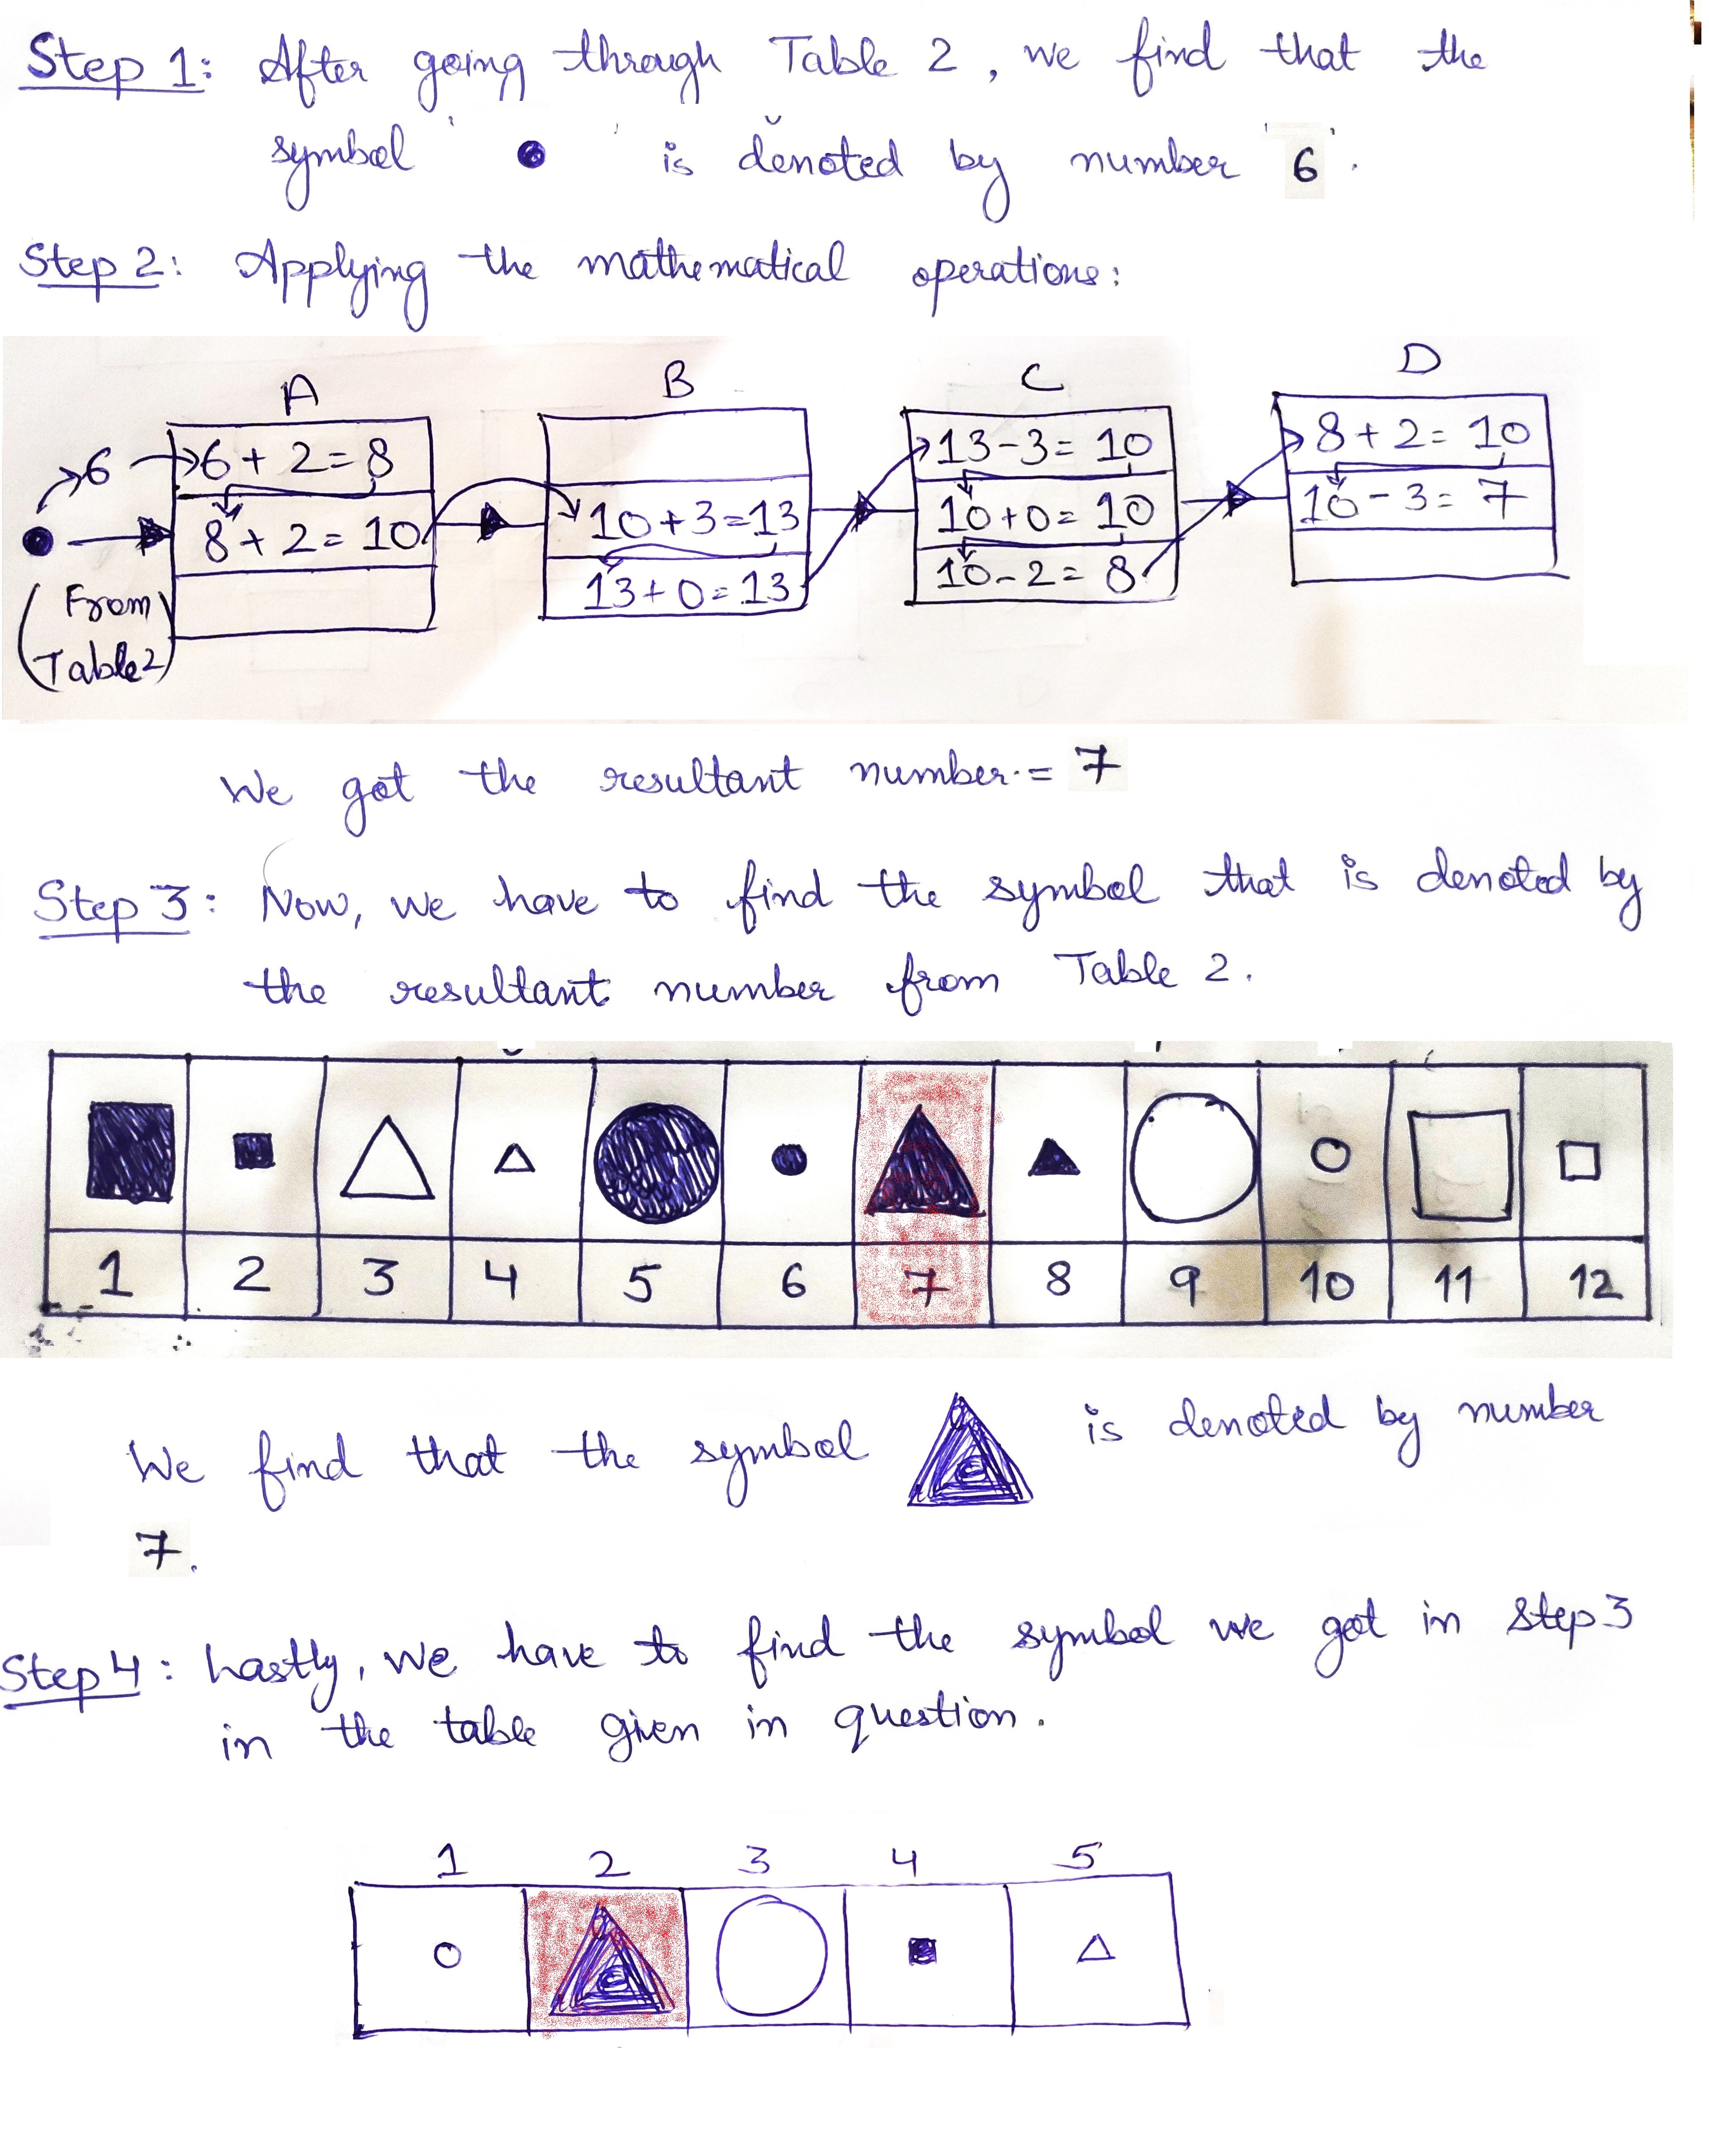 Step 1: After going through Table 2, we find that the
symbol ' ● ' is denoted by number '6'.
Step 2: Applying the mathematical operations:
A B C D
6 6 + 2 = 8
8 + 2 = 10
(From Table 2)
10 + 3 = 13
13 + 0 = 13
13 - 3 = 10
10 + 0 = 10
10 - 2 = 8
8 + 2 = 10
10 - 3 = 7
We got the resultant number = 7
Step 3: Now, we have to find the symbol that is denoted by
the resultant number from Table 2.
1 2 3 4 5 6 7 8 9 10 11 12
We find that the symbol is denoted by number
7.
Step 4: Lastly, we have to find the symbol we got in Step 3
in the table given in question.
1 2 3 4 5